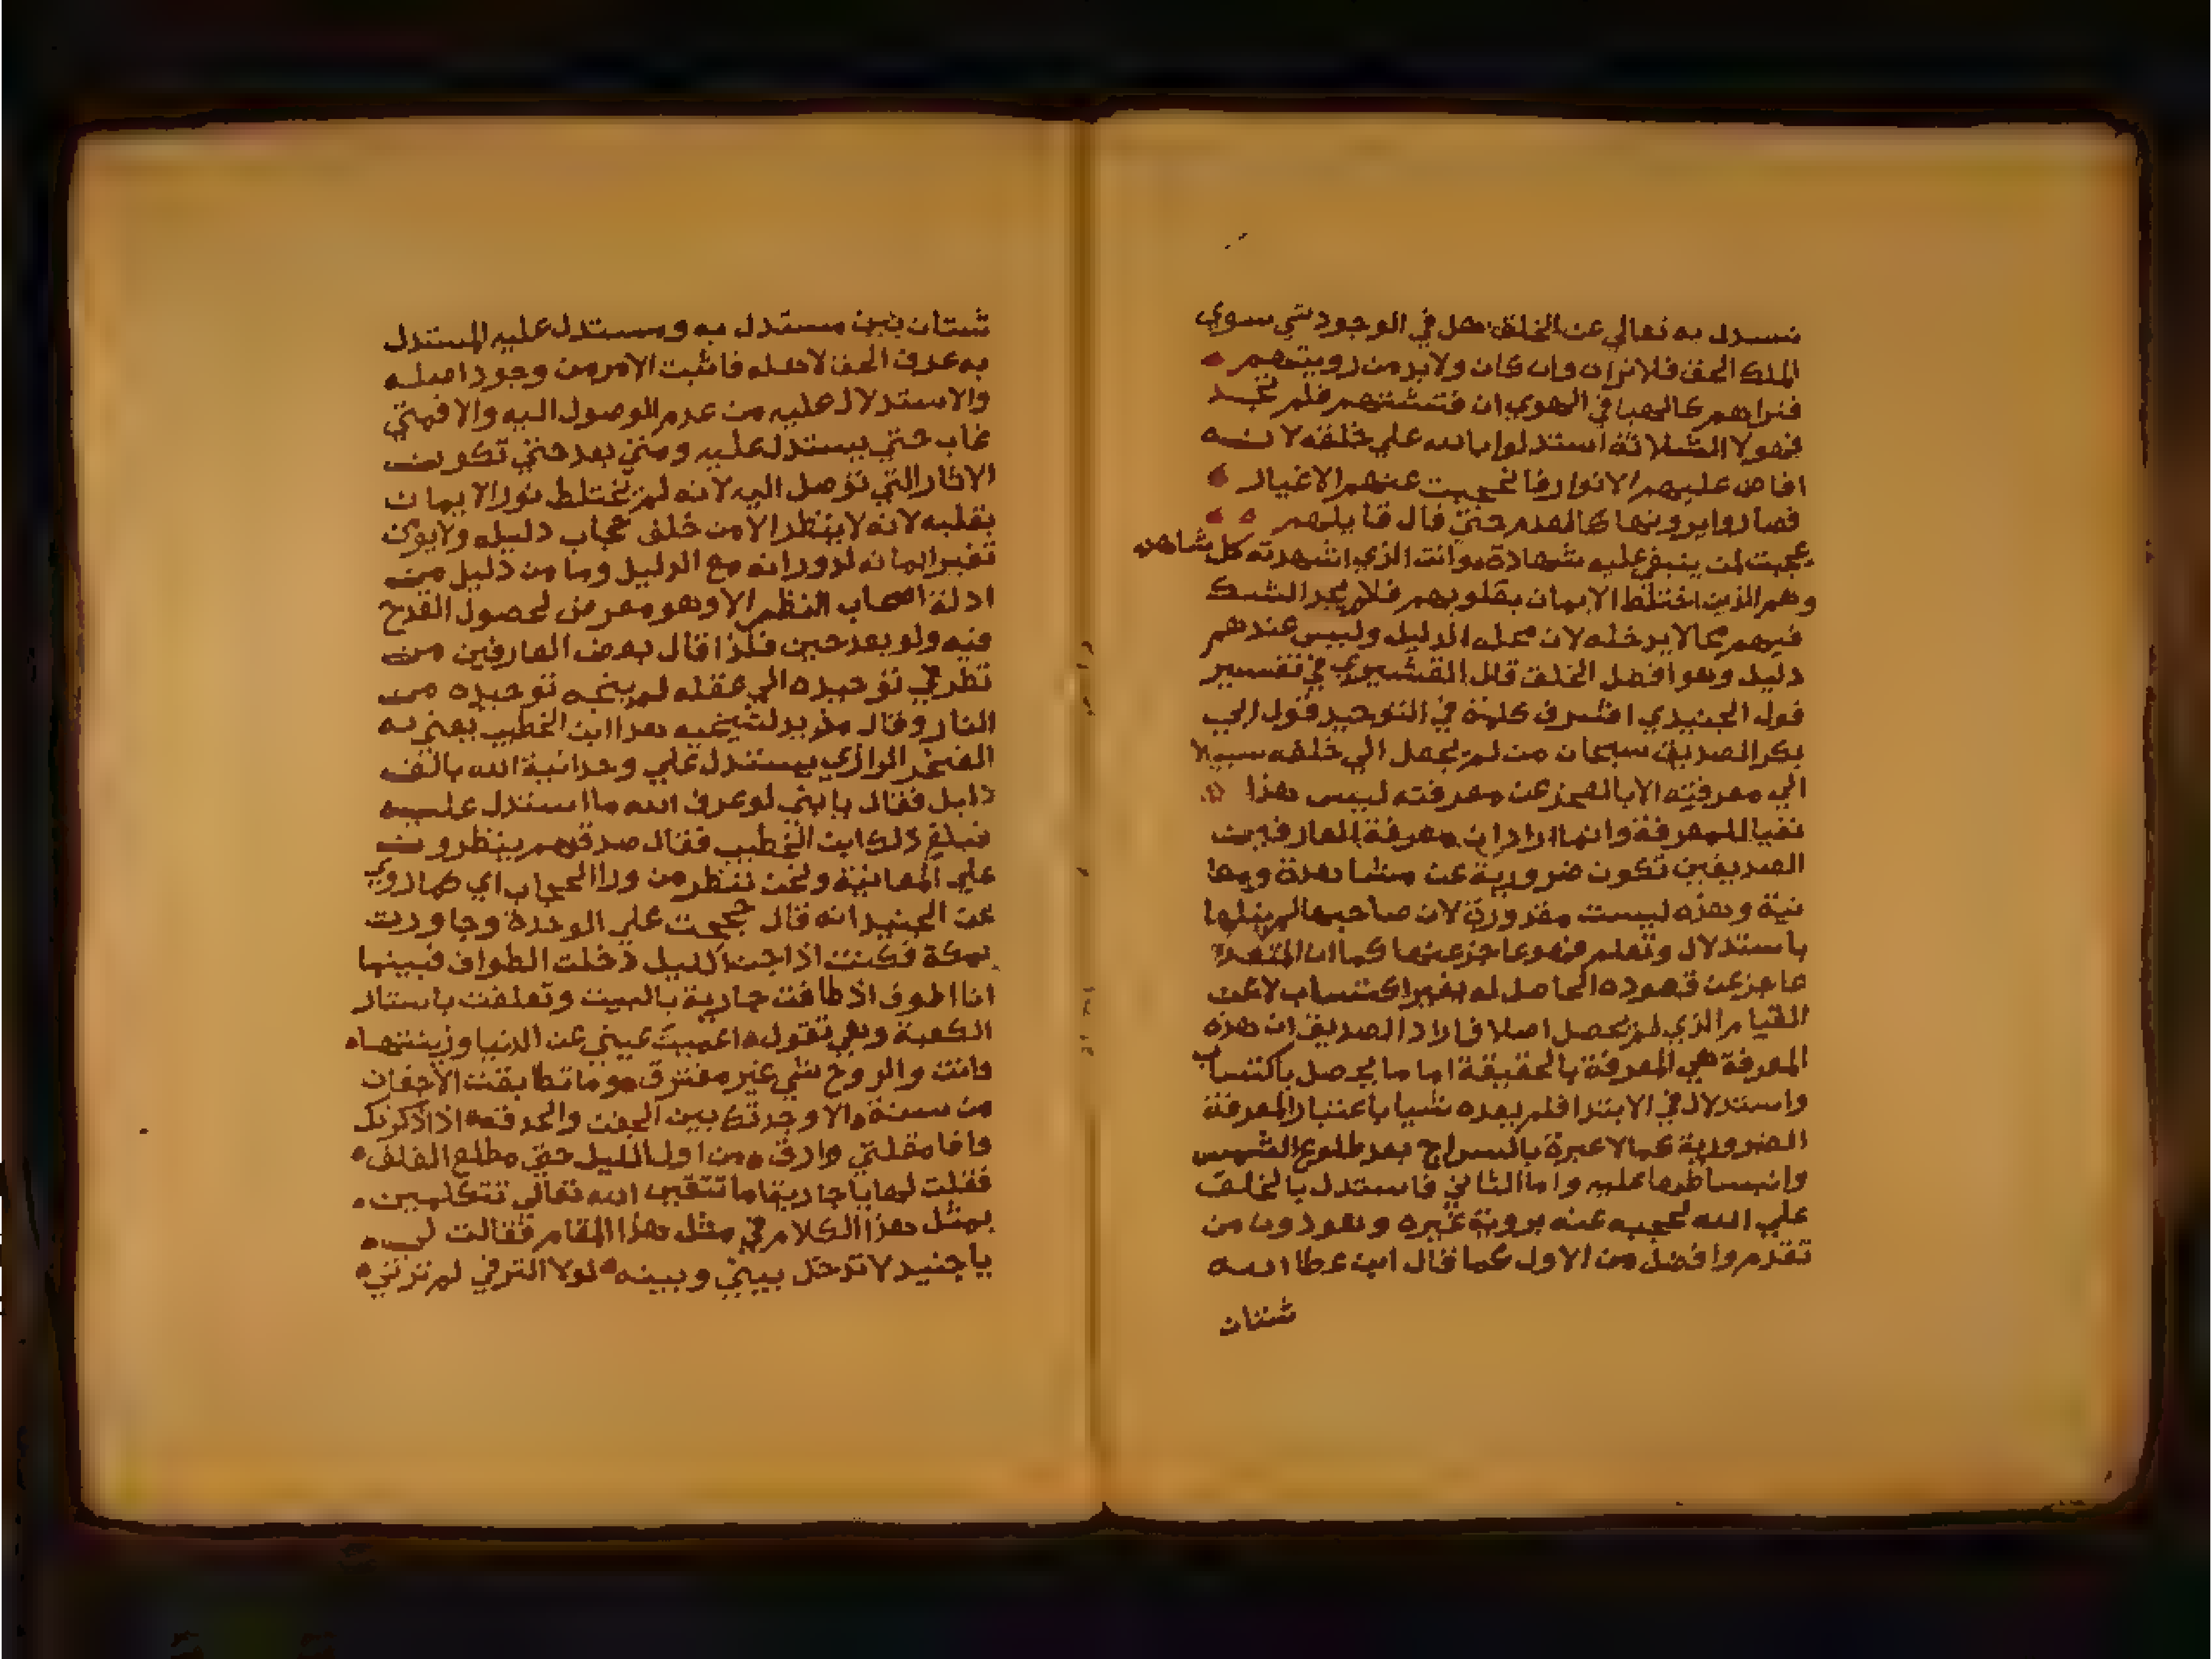 نستدل به تعالي عن الخلق هل في الوجود شي سوي
الملك الحق فلا نراه وان كان ولابد من رويتهم
فنراهم كالهبا في الهوي ان فتشتهم فلم تجد
فهولا الثلاثة استدلوا بالله علي خلقه لانه
افاض عليهم الانوار فانحجبت عنهم الاغيار
فصاروا يرونها كالعدم حتي قال قايلهم
عجبت لمن ينبغ عليه شهادة وانت الذي اشهدته كل شاهد
وهم الذين اختلط الايمان بقلوبهم فلا يجد الشك
فيهم محالا يدخله لان محله الدليل وليس عندهم
دليل وهو افضل الخلق قال القشيري في تفسير
قول الجنيدي اشرف كلمة في التوحيد قول ابي
بكر الصديق سبحان من لم يجعل الي خلقه سبيلا
الي معرفته الا بالعجز عن معرفته ليس هذا
نفيا للمعرفة وانما اراد ان معرفة العارفين
الصديقين تكون ضرورية عن مشاهدة ومعا
نية وهذه ليست مقدورة لان صاحبها لم ينلها
باستدلال وتعلم فهو عاجز عنها كما ان المقعد
عاجز عن قعوده الحاصل له بغير اكتساب لا عن
القيام الذي لم يحصل اصلا فاراد الصديق ان هذه
المعرفة هي المعرفة بالحقيقة اما ما يحصل باكتساب
واستدلال في الابتدا فلم يعده شيا باعتبار المعرفة
الضرورية كما لا عبرة بالسراج بعد طلوع الشمس
وانبساطها عليه واما الثاني فاستدل بالخلق
علي الله لحجبه عنه بروية غيره وهو دون من
تقدم وافضل من الاول كما قال ابن عطا الله
شتان
شتان بين مستدل به ومستدل عليه المستدل
به عرف الحق لاهله فاثبت الامر من وجود اصله
والاستدلال عليه من عدم الوصول اليه والا فمتي
غاب حتي يستدل عليه ومتي بعد حتي تكون
الاثار التي توصل اليه لانه لم تختلط نور الايمان
بقلبه لانه لا ينظر الا من خلف حجاب دليله ولا يومن
تغير ايمانه لدورانه مع الدليل وما من دليل من
ادلة اصحاب النظر الا وهو معرض لحصول القدح
فيه ولو بعد حين فلذا قال بعض العارفين من
نظر في توحيده الي عقله لم ينجه توحيده من
النار وقال مريد لشيخه هذا ابن الخطيب يعني به
الفخر الرازي يستدل علي وحدانية الله بالف
دليل فقال يا بني لو عرف الله ما استدل عليه
فبلغ ذلك ابن الخطيب فقال صدق هم ينظرون
علي المعاينة ونحن ننظر من ورا الحجاب اي كما روي
عن الجنيد انه قال حججت علي الوحدة وجاورت
بمكة فكنت اذا جن الليل دخلت الطواف فبينما
انا اطوف اذ طافت جارية بالبيت وتعلقت باستار
الكعبة وهي تقول اعميت عيني عن الدنيا وزينتها
وانت والروح شي غير مفترق وما تطابقت الاجفان
من سنة الا وجدتك بين الجفن والحدقة اذا ذكرتك
وافا مقلتي وارق من اول الليل حتي مطلع الفلق
فقلت لها يا جارية اما تتقين الله تعالي تتكلمين
بمثل هذا الكلام في مثل هذا المقام فقالت لي
يا جنيد لا تدخل بيني وبينه لولا الترقي لم ترني